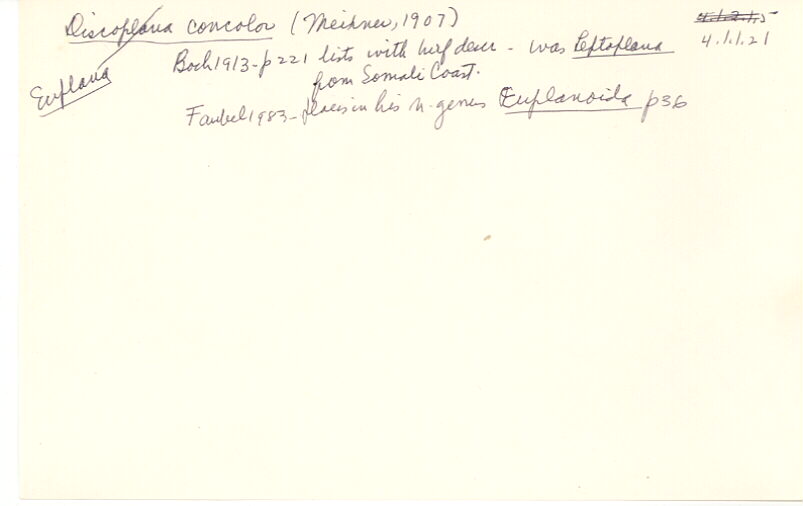 Discoplana concolor (Meixner, 1907)
4.1.2.1.5
4.1.1.21
Euplana
Bock 1913 - p 221 lists with brief descr - was Leptoplana
from Somali Coast.
Faubel 1983 - places in his n. genus Euplanoida p36